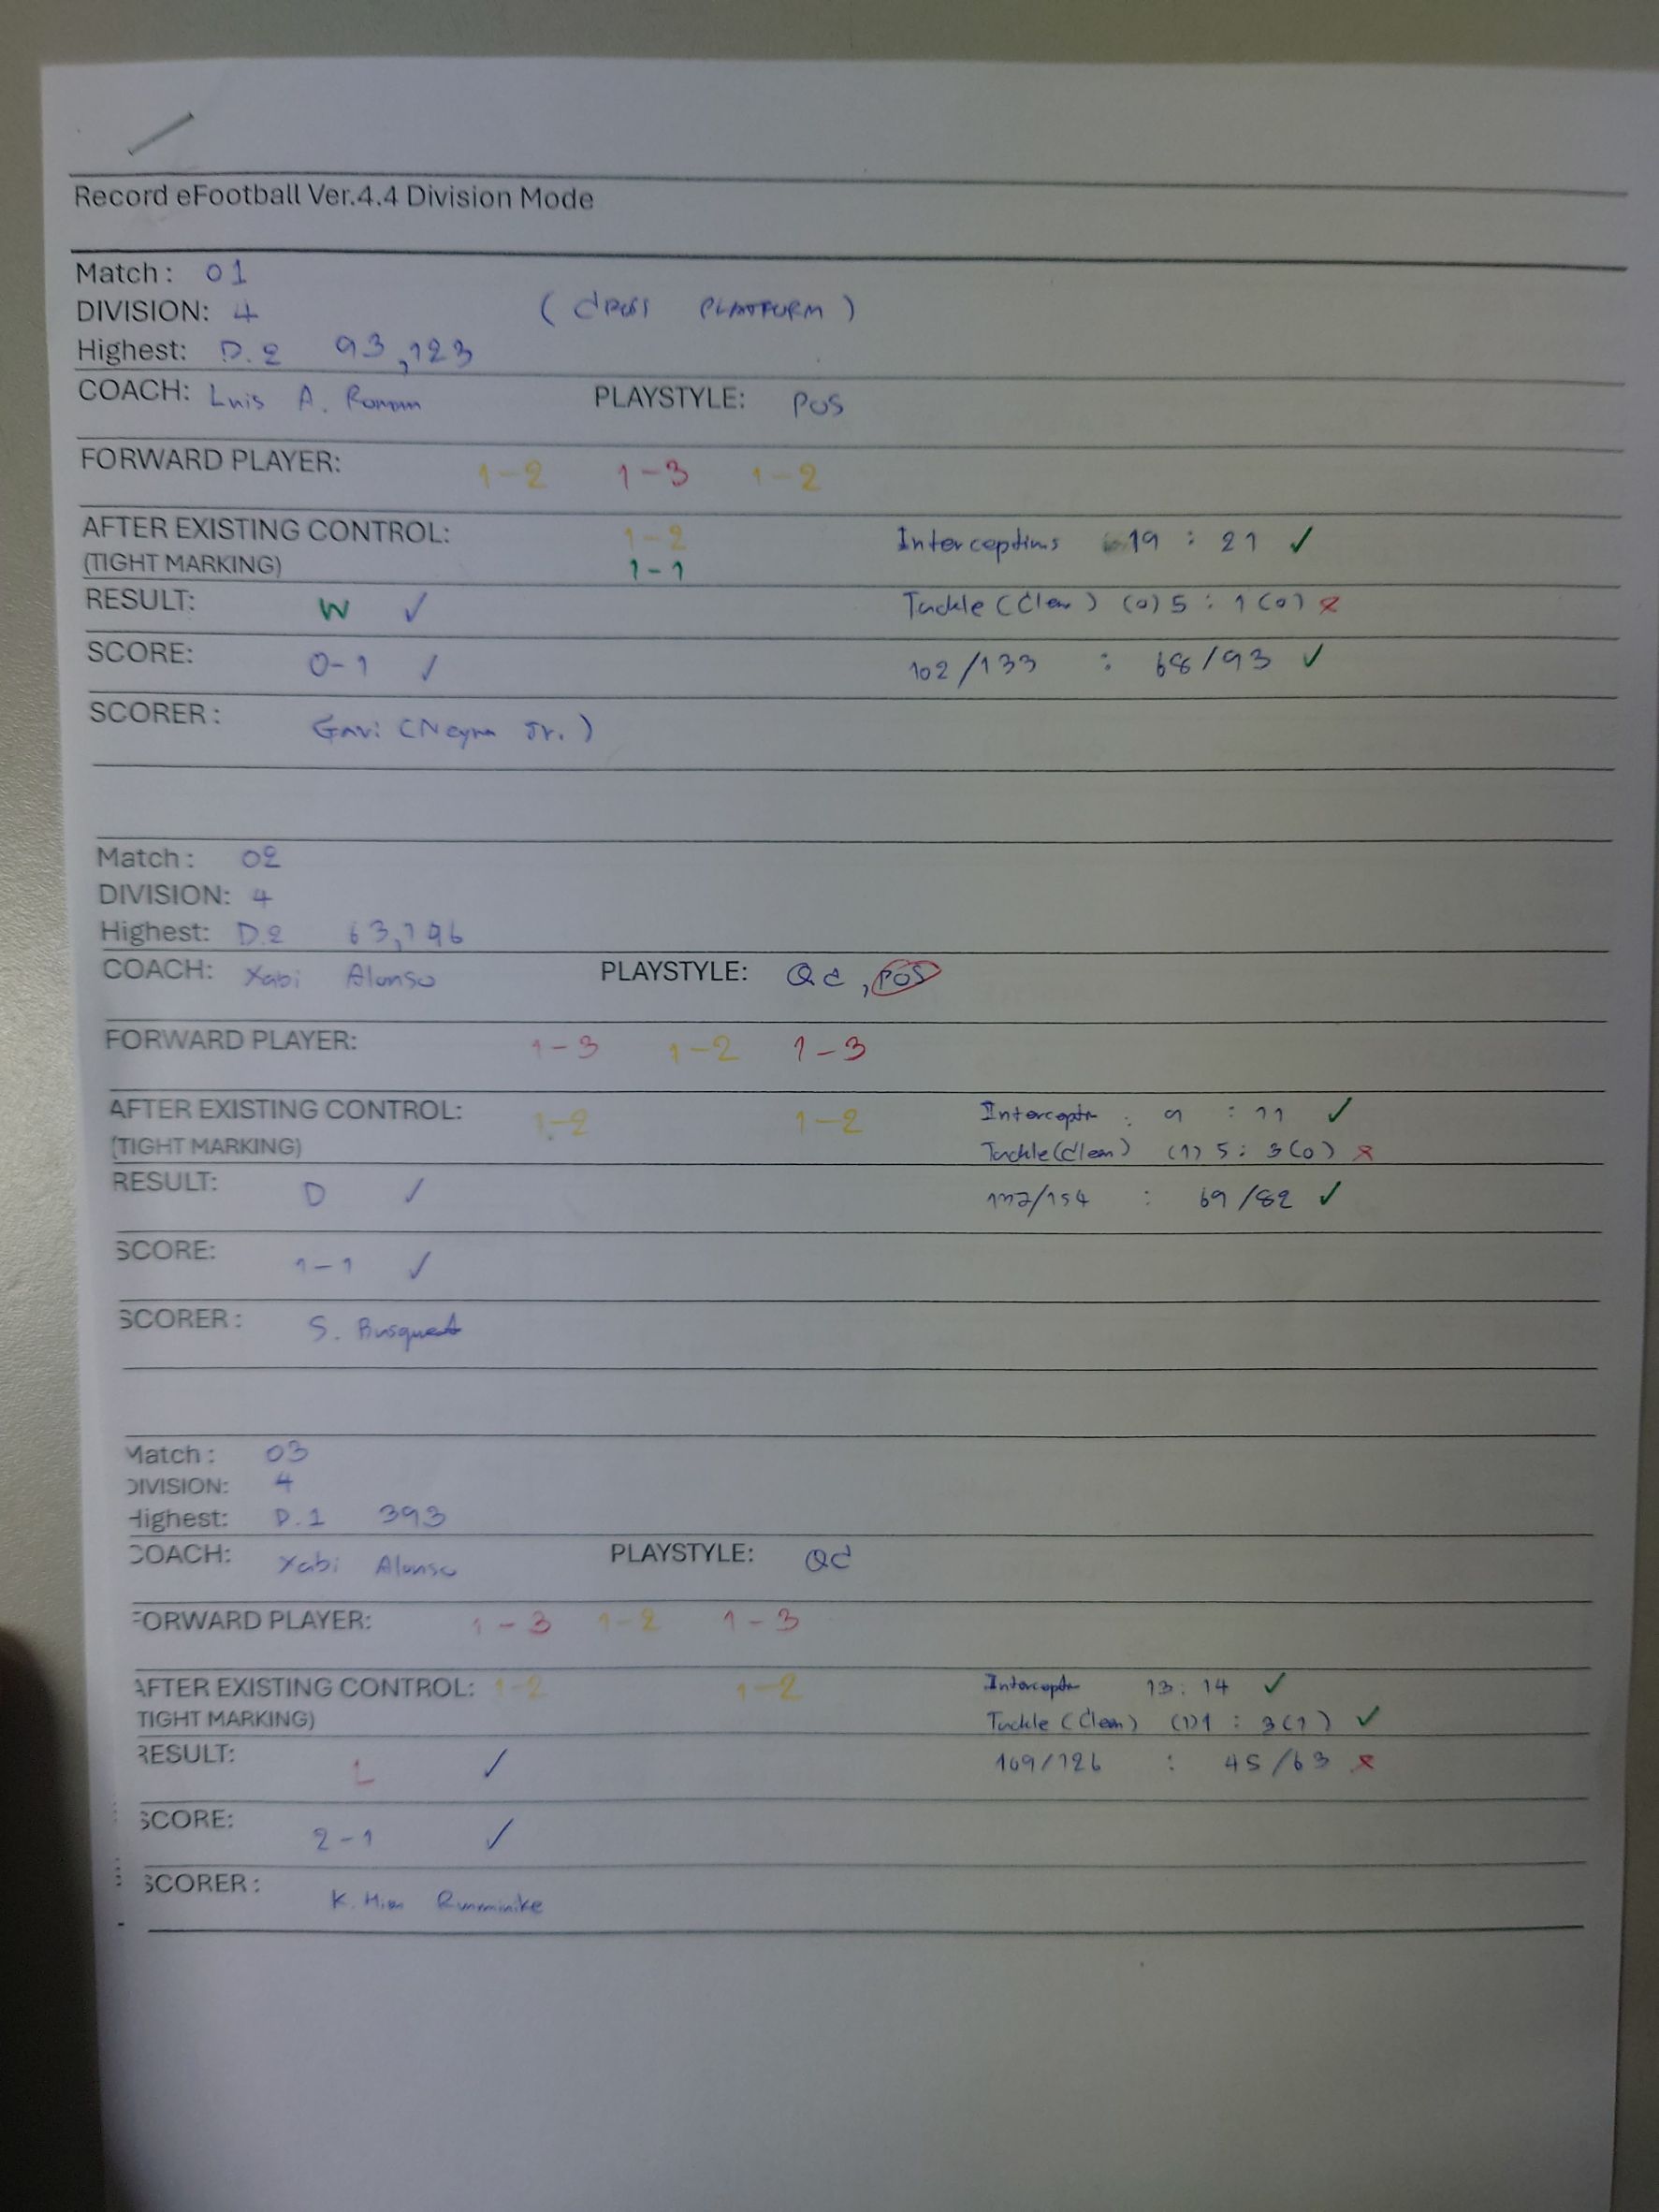 Record eFootball Ver.4.4 Division Mode
Match : 01
DIVISION: 4 ( PLATFORM )
Highest: D.2 93,123
COACH: Luis A. Roman PLAYSTYLE: POS
FORWARD PLAYER: 1-2 1-3 1-2
AFTER EXISTING CONTROL: 1-2 Interceptions 19 : 21 ✓
(TIGHT MARKING) 1-1
RESULT: W ✓ Tackle (Clean) (0) 5 : 1 (0) x
SCORE: 0-1 ✓ 102/133 : 68/93 ✓
SCORER : Gavi (Neyma Jr.)
Match : 02
DIVISION: 4
Highest: D.2 63,796
COACH: Xabi Alonso PLAYSTYLE: QC, POS
FORWARD PLAYER: 1-3 1-2 1-3
AFTER EXISTING CONTROL: 1-2 1-2 Interceptn : 9 : 11 ✓
(TIGHT MARKING) Tackle (Clean) (1) 5 : 3 (0) x
RESULT: D ✓ : 69/82 ✓
SCORE: 1-1 ✓
SCORER : S. Busquest
Match : 03
DIVISION: 4
Highest: D.1 393
COACH: Xabi Alonso PLAYSTYLE: QC
FORWARD PLAYER: 1-3 1-2 1-3
AFTER EXISTING CONTROL: 1-2 1-2 Interceptn 13 : 14 ✓
TIGHT MARKING) Tackle (Clean) (1) 1 : 3 (1) ✓
RESULT: L ✓ 109/126 : 45/63 x
SCORE: 2-1 ✓
SCORER : K. Rumminike